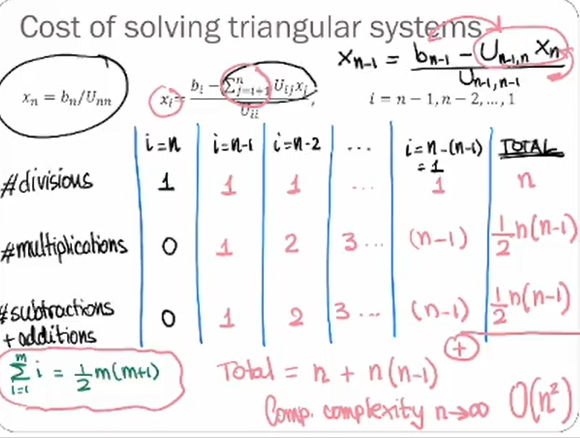 Cost of solving triangular systems
x_{n-1} = (b_{n-1} - U_{n-1,n} x_n) / U_{n-1,n-1}
x_n = b_n/U_{nn}
x_i = (b_i - Σ_{j=i+1}^{n} U_{ij}x_j) / U_{ii},
i = n - 1, n - 2, ..., 1
i=n i=n-1 i=n-2 ... i=n-(n-1) =1 TOTAL
#divisions 1 1 1 ... 1 n
#multiplications 0 1 2 3... (n-1) 1/2 n(n-1)
#subtractions + additions 0 1 2 3... (n-1) 1/2 n(n-1)
+
Σ_{i=1}^{m} i = 1/2 m(m+1)
Total = n + n(n-1)
Comp. complexity n→∞ O(n²)